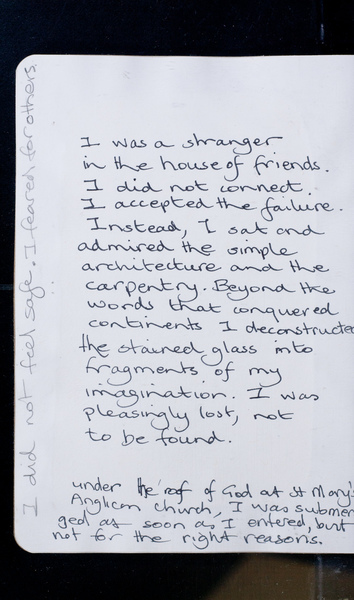 I was a stranger
in the house of friends.
I did not connect.
I accepted the failure.
Instead, I sat and
admired the simple
architecture and the
carpentry. Beyond the
words that conquered
continents I deconstructe
the stained glass into
fragments of my
imagination. I was
pleasingly lost, not
to be found.
under the roof of God at St Mary's
Anglican church, I was submer
ged as soon as I entered, but
not for the right reasons.
I did not feel safe. I feared for others.